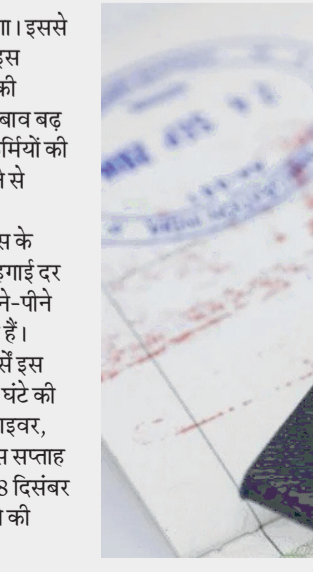 गा। इससे
इस
की
बाव बढ़
र्मियों की
ने से
स के
हगाई दर
ने-पीने
हैं।
र्सें इस
घंटे की
ाइवर,
स सप्ताह
8 दिसंबर
की